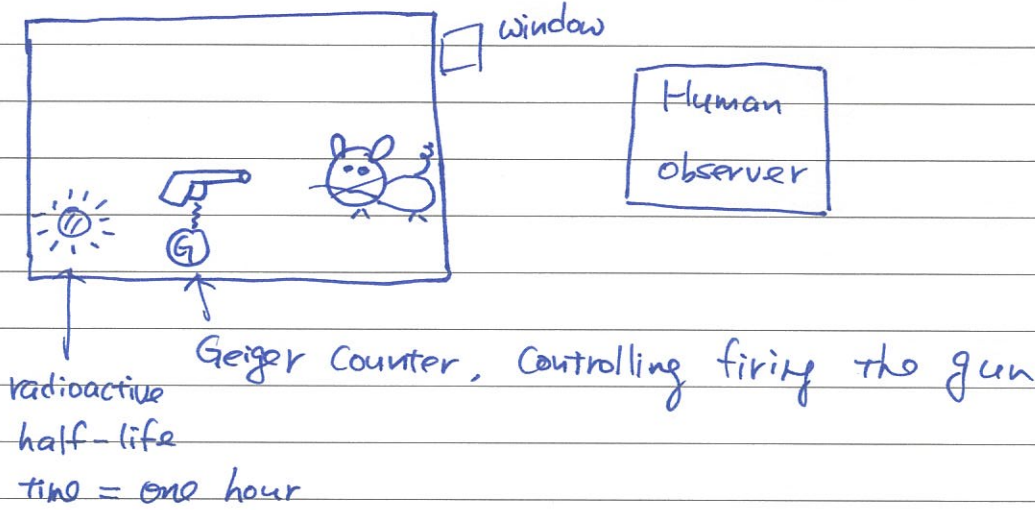 window
Human
observer
G
Geiger Counter, Controlling firing the gun
radioactive
half-life
time = one hour